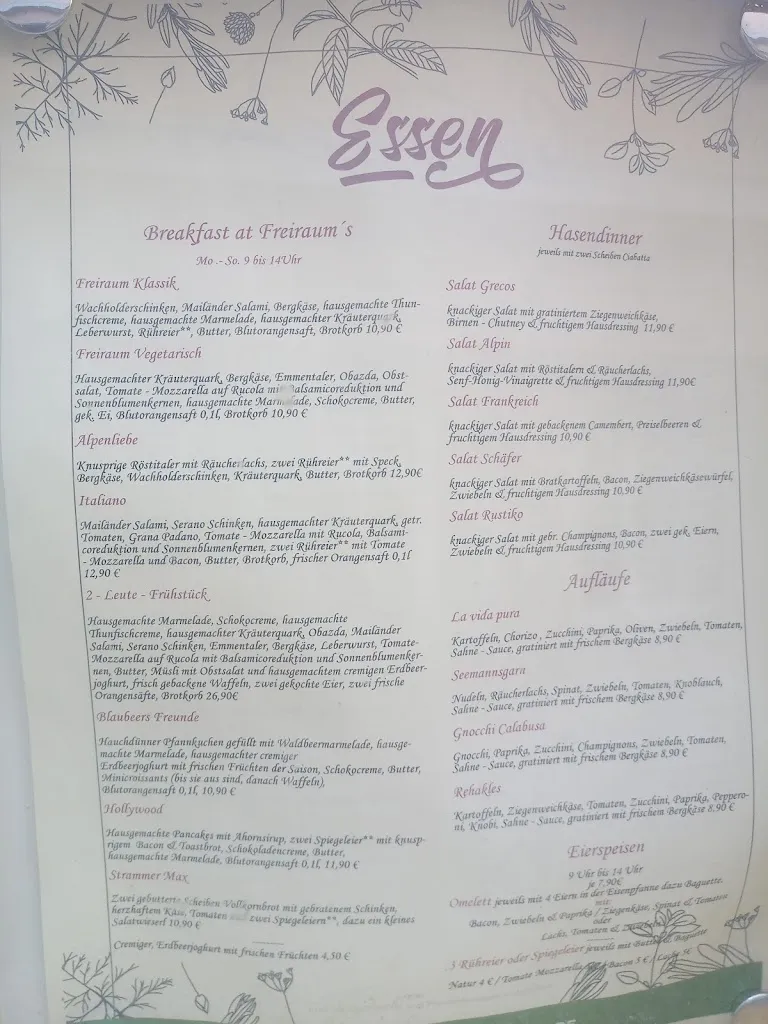 Essen
Breakfast at Freiraum´s
Mo .- So. 9 bis 14Uhr
Freiraum Klassik
Wachholderschinken, Mailänder Salami, Bergkäse, hausgemachte Thun-
fischcreme, hausgemachte Marmelade, hausgemachter Kräuterquark,
Leberwurst, Rühreier**, Butter, Blutorangensaft, Brotkorb 10,90 €
Freiraum Vegetarisch
Hausgemachter Kräuterquark, Bergkäse, Emmentaler, Obazda, Obst-
salat, Tomate - Mozzarella auf Rucola mit Balsamicoreduktion und
Sonnenblumenkernen, hausgemachte Marmelade, Schokocreme, Butter,
gek. Ei, Blutorangensaft 0,1l, Brotkorb 10,90 €
Alpenliebe
Knusprige Röstitaler mit Räucherlachs, zwei Rühreier** mit Speck,
Bergkäse, Wachholderschinken, Kräuterquark, Butter, Brotkorb 12,90€
Italiano
Mailänder Salami, Serano Schinken, hausgemachter Kräuterquark, getr.
Tomaten, Grana Padano, Tomate - Mozzarella mit Rucola, Balsami-
coreduktion und Sonnenblumenkernen, zwei Rühreier** mit Tomate
- Mozzarella und Bacon, Butter, Brotkorb, frischer Orangensaft 0,1l
12,90 €
2 - Leute - Frühstück
Hausgemachte Marmelade, Schokocreme, hausgemachte
Thunfischcreme, hausgemachter Kräuterquark, Obazda, Mailänder
Salami, Serano Schinken, Emmentaler, Bergkäse, Leberwurst, Tomate-
Mozzarella auf Rucola mit Balsamicoreduktion und Sonnenblumenker-
nen, Butter, Müsli mit Obstsalat und hausgemachtem cremigen Erdbeer-
joghurt, frisch gebackene Waffeln, zwei gekochte Eier, zwei frische
Orangensäfte, Brotkorb 26,90€
Blaubeers Freunde
Hauchdünner Pfannkuchen gefüllt mit Waldbeermarmelade, hausge-
machte Marmelade, hausgemachter cremiger
Erdbeerjoghurt mit frischen Früchten der Saison, Schokocreme, Butter,
Minicroissants (bis sie aus sind, danach Waffeln),
Blutorangensaft 0,1l, 10,90 €
Hollywood
Hausgemachte Pancakes mit Ahornsirup, zwei Spiegeleier** mit knusp-
rigem Bacon & Toastbrot, Schokoladencreme, Butter,
hausgemachte Marmelade, Blutorangensaft 0,1l, 11,90 €
Strammer Max
Zwei gebutterte Scheiben Vollkornbrot mit gebratenem Schinken,
herzhaftem Käse, Tomaten und zwei Spiegeleiern**, dazu ein kleines
Salatwieserl 10,90 €
Cremiger, Erdbeerjoghurt mit frischen Früchten 4,50 €
Hasendinner
jeweils mit zwei Scheiben Ciabatta
Salat Grecos
knackiger Salat mit gratiniertem Ziegenweichkäse,
Birnen - Chutney & fruchtigem Hausdressing 11,90 €
Salat Alpin
knackiger Salat mit Röstitalern & Räucherlachs,
Senf-Honig-Vinaigrette & fruchtigem Hausdressing 11,90€
Salat Frankreich
knackiger Salat mit gebackenem Camembert, Preiselbeeren &
fruchtigem Hausdressing 10,90 €
Salat Schäfer
knackiger Salat mit Bratkartoffeln, Bacon, Ziegenweichkäsewürfel,
Zwiebeln & fruchtigem Hausdressing 10,90 €
Salat Rustiko
knackiger Salat mit gebr. Champignons, Bacon, zwei gek. Eiern,
Zwiebeln & fruchtigem Hausdressing 10,90 €
Aufläufe
La vida pura
Kartoffeln, Chorizo , Zucchini, Paprika, Oliven, Zwiebeln, Tomaten,
Sahne - Sauce, gratiniert mit frischem Bergkäse 8,90 €
Seemannsgarn
Nudeln, Räucherlachs, Spinat, Zwiebeln, Tomaten, Knoblauch,
Sahne - Sauce, gratiniert mit frischem Bergkäse 8,90 €
Gnocchi Calabusa
Gnocchi, Paprika, Zucchini, Champignons, Zwiebeln, Tomaten,
Sahne - Sauce, gratiniert mit frischem Bergkäse 8,90 €
Rehakles
Kartoffeln, Ziegenweichkäse, Tomaten, Zucchini, Paprika, Peppero-
ni, Knobi, Sahne - Sauce, gratiniert mit frischem Bergkäse 8,90 €
Eierspeisen
9 Uhr bis 14 Uhr
je 7,90€
Omelett jeweils mit 4 Eiern in der Eisenpfanne dazu Baguette.
mit:
Bacon, Zwiebeln & Paprika / Ziegenkäse, Spinat & Tomaten
oder
Lachs, Tomaten & Zwiebeln
3 Rühreier oder Spiegeleier jeweils mit Butter & Baguette
Natur 4 € / Tomate Mozzarella 5€ / Bacon 5 € / Lachs 5€